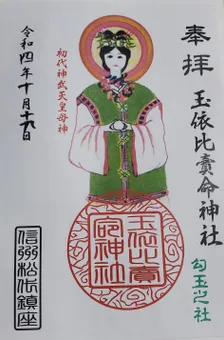 奉拝
玉依比賣命神社
勾玉之社
初代神武天皇母神
令和四年十月十六日
玉依比賣命神社
信州松代鎮座